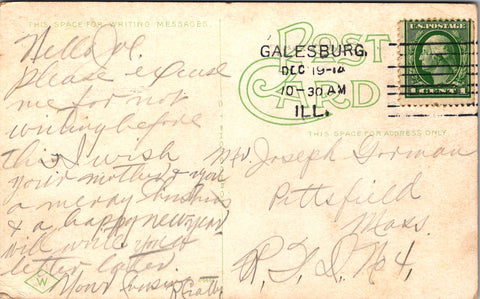 THIS SPACE FOR WRITING MESSAGES.
POST CARD
THIS SPACE FOR ADDRESS ONLY
GALESBURG,
DEC 19-14
10-30 AM
ILL.
U.S. POSTAGE
Hello Joe.
Please excuse
me for not
writing before
this I wish
your mother & you
a merry Christmas
& a happy new year
will write you a
letter later
Your cousin
W
Mr. Joseph Gorman
Pittsfield
Mass.
R. F. D. No 4,